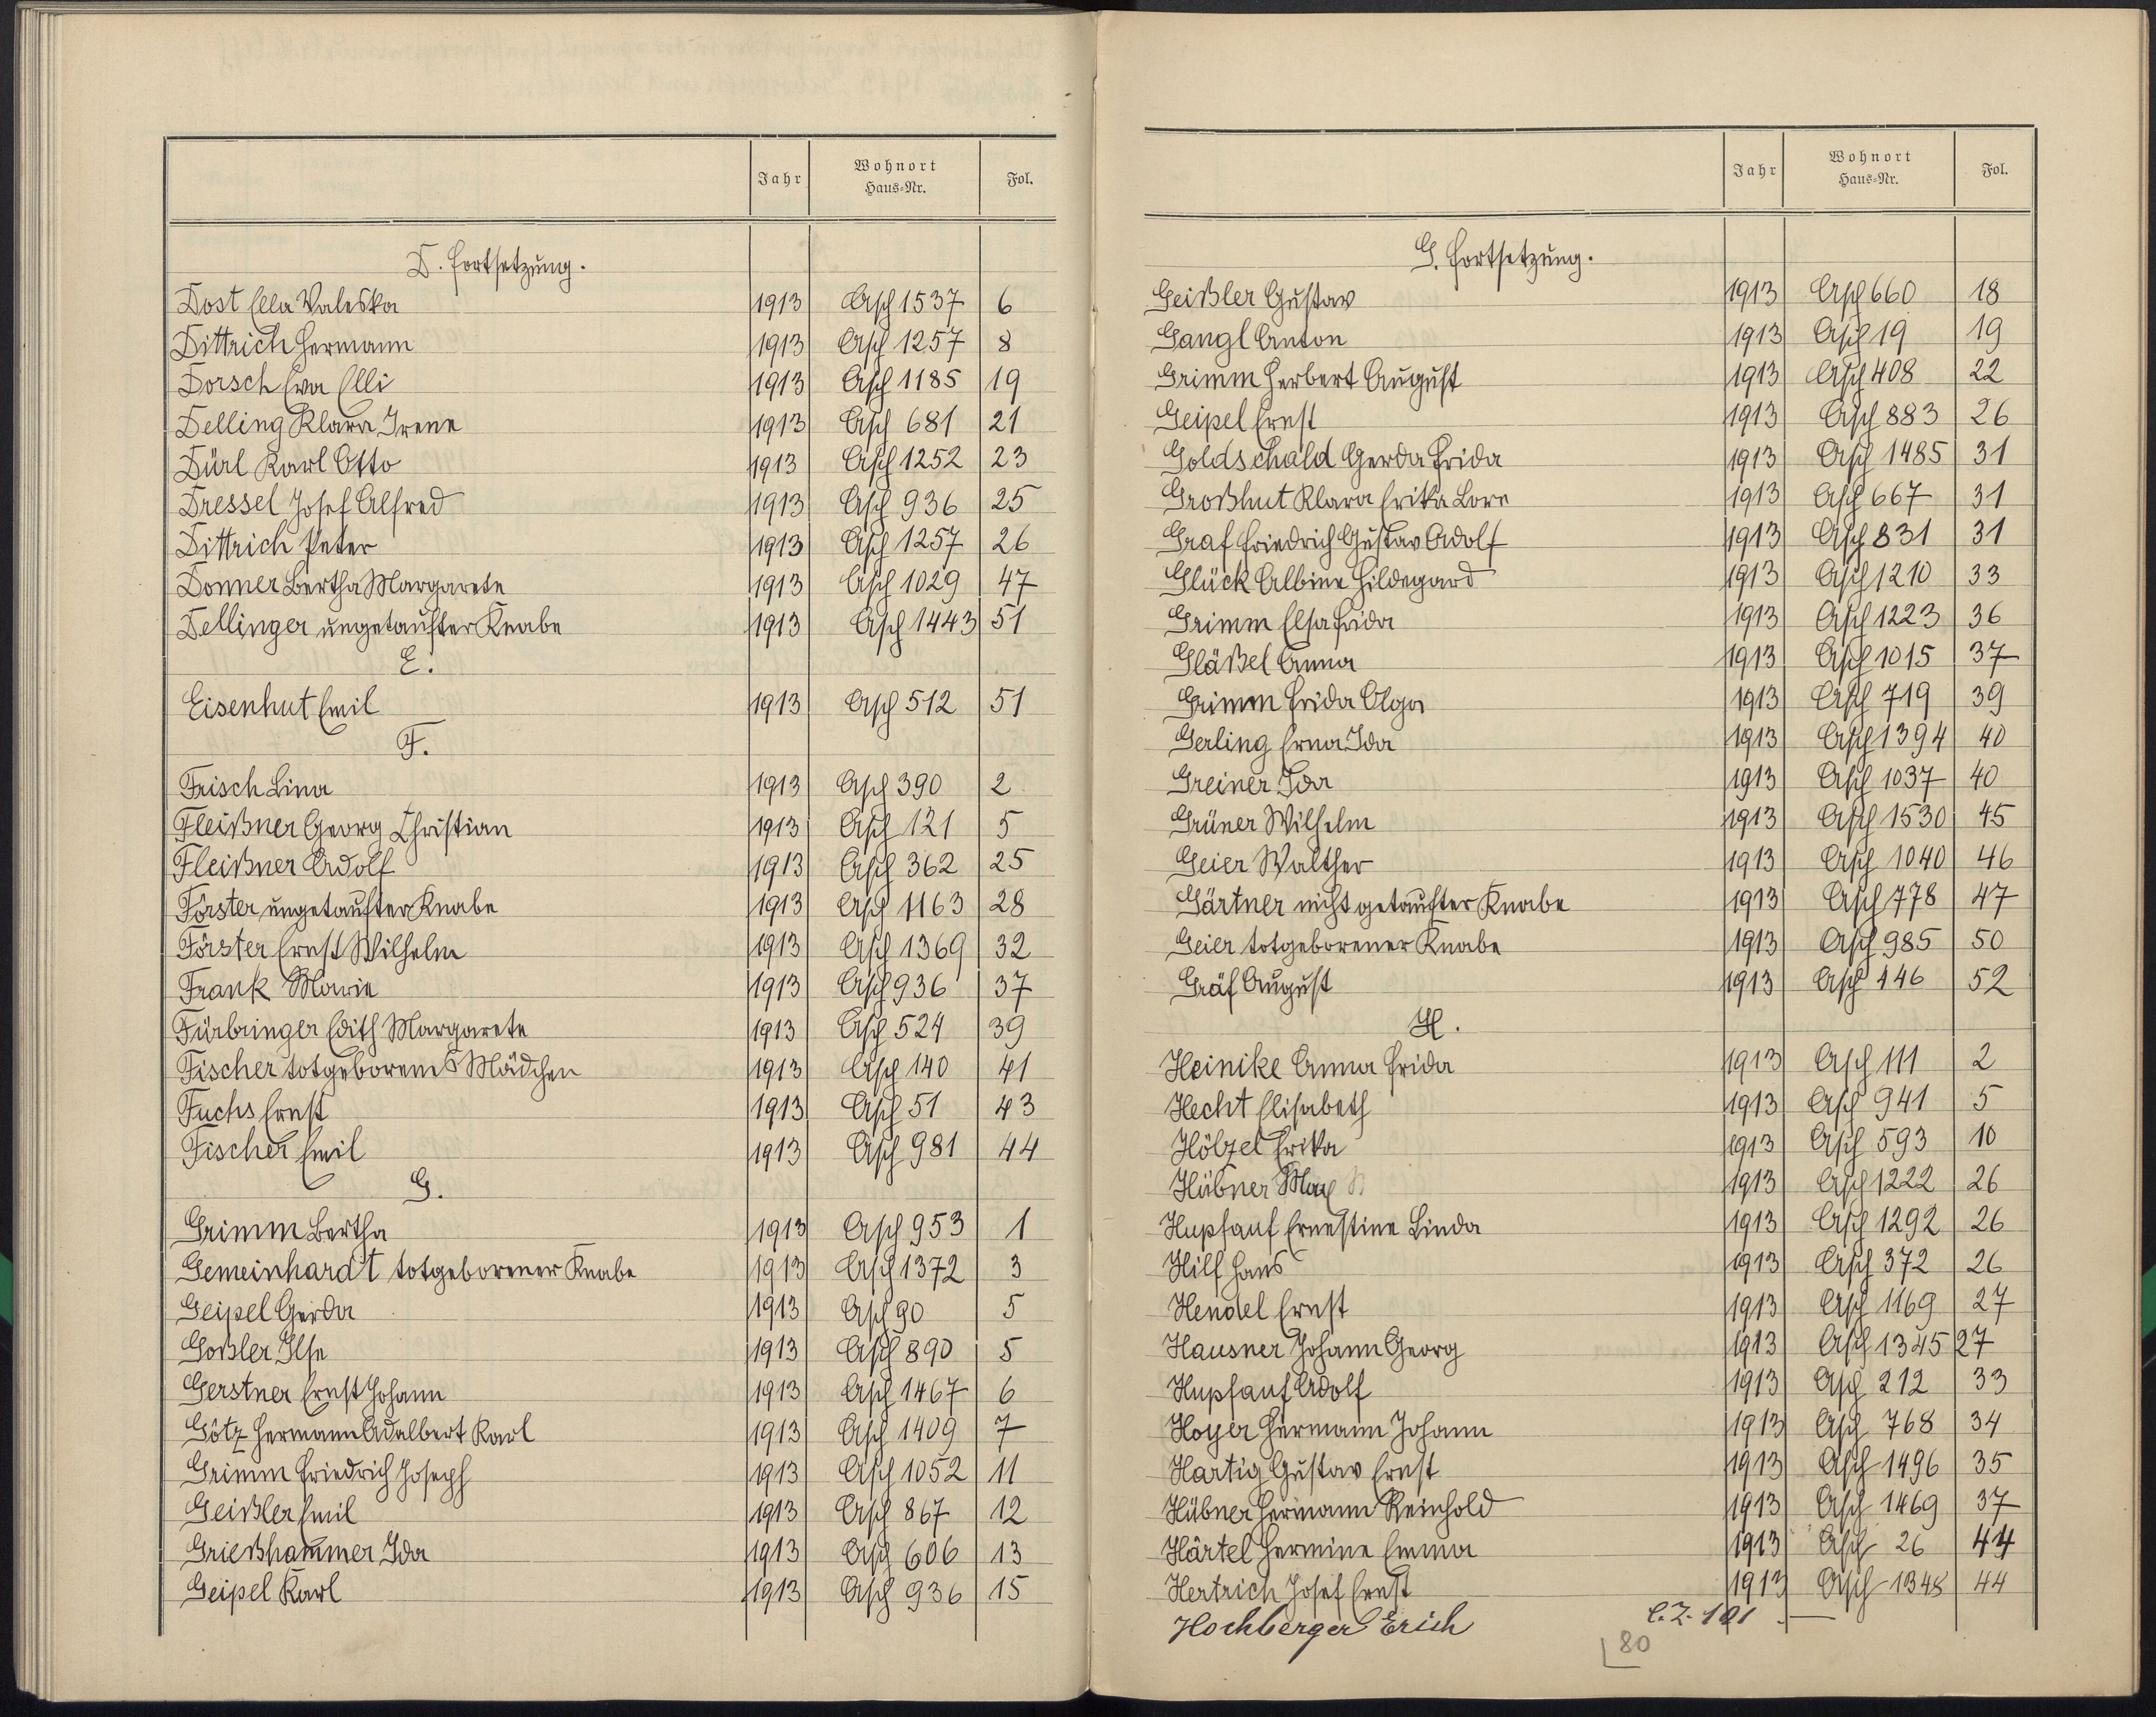 Jahr Wohnort Haus-Nr. Fol.
D. Fortsetzung.
Dost Ella Valeska 1913 Asch 1537 6
Dittrich Hermann 1913 Asch 1257 8
Dorsch Eva Elli 1913 Asch 1185 19
Delling Klara Irene 1913 Asch 681 21
Dürl Karl Otto 1913 Asch 1252 23
Dressel Josef Alfred 1913 Asch 936 25
Dittrich Peter 1913 Asch 1257 26
Donner Bertha Margarete 1913 Asch 1029 47
Dellinger ungetaufter Knabe 1913 Asch 1443 51
E.
Eisenhut Emil 1913 Asch 512 51
F.
Frisch Lina 1913 Asch 390 2
Fleißner Georg Christian 1913 Asch 121 5
Fleißner Adolf 1913 Asch 362 25
Förster ungetaufter Knabe 1913 Asch 1163 28
Förster Ernst Wilhelm 1913 Asch 1369 32
Frank Marie 1913 Asch 936 37
Fürbringer Edith Margarete 1913 Asch 524 39
Fischer totgeborenes Mädchen 1913 Asch 140 41
Fuchs Ernst 1913 Asch 51 43
Fischer Emil 1913 Asch 981 44
G.
Grimm Bertha 1913 Asch 953 1
Gemeinhardt totgeborener Knabe 1913 Asch 1372 3
Geipel Gerda 1913 Asch 90 5
Goßler Ilse 1913 Asch 890 5
Gerstner Ernst Johann 1913 Asch 1467 6
Götz Hermann Adalbert Karl 1913 Asch 1409 7
Grimm Friedrich Joseph 1913 Asch 1052 11
Geißler Emil 1913 Asch 867 12
Grießhammer Ida 1913 Asch 606 13
Geipel Karl 1913 Asch 936 15
Jahr Wohnort Haus-Nr. Fol.
G. Fortsetzung.
Geißler Gustav 1913 Asch 660 18
Gangl Anton 1913 Asch 19 19
Grimm Herbert August 1913 Asch 408 22
Geipel Ernst 1913 Asch 883 26
Goldschald Gerda Frida 1913 Asch 1485 31
Großhut Klara Erika Lore 1913 Asch 667 31
Graf Friedrich Gustav Adolf 1913 Asch 831 31
Glück Albine Hildegard 1913 Asch 1210 33
Grimm Elsa Frida 1913 Asch 1223 36
Gläßel Anna 1913 Asch 1015 37
Grimm Frida Olga 1913 Asch 719 39
Gerling Erna Ida 1913 Asch 1394 40
Greiner Ida 1913 Asch 1037 40
Grüner Wilhelm 1913 Asch 1530 45
Geier Walther 1913 Asch 1040 46
Gärtner nicht getaufter Knabe 1913 Asch 778 47
Geier totgeborener Knabe 1913 Asch 985 50
Gräf August 1913 Asch 446 52
H.
Heinike Anna Frida 1913 Asch 111 2
Hecht Elisabeth 1913 Asch 941 5
Hölzel Erika 1913 Asch 593 10
Hübner Max 1913 Asch 1222 26
Hupfauf Ernestine Linda 1913 Asch 1292 26
Hilf Hans 1913 Asch 372 26
Hendel Ernst 1913 Asch 1169 27
Hausner Johann Georg 1913 Asch 1345 27
Hupfauf Adolf 1913 Asch 212 33
Hoyer Hermann Johann 1913 Asch 768 34
Hartig Gustav Ernst 1913 Asch 1496 35
Hübner Hermann Reinhold 1913 Asch 1469 37
Härtel Hermine Emma 1913 Asch 26 44
Hertrich Josef Ernst 1913 Asch 1348 44
Hochberger Erich E.Z. 101 —
80